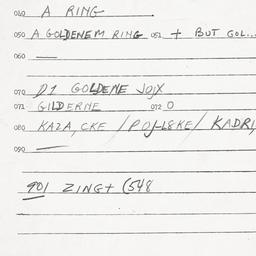 040 A RING
050 A GOLDENEM RING 051 + BUT GOL...
060 —
070 D1 GOLDENE JOJX
071 GILDERNE 072 O
080 KAZA, CKE / POJ-L8KE / KADRI
090 —
901 ZING+ (548